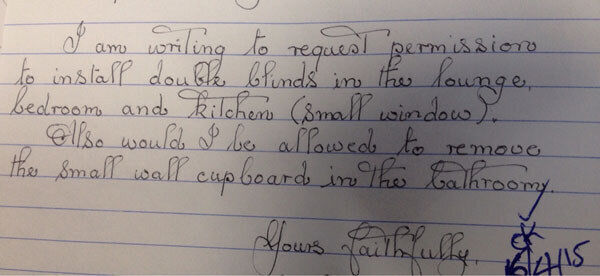 I am writing to request permission
to install double blinds in the lounge,
bedroom and kitchen (small window).
Also would I be allowed to remove
the small wall cupboard in the bathroom.
Yours faithfully,